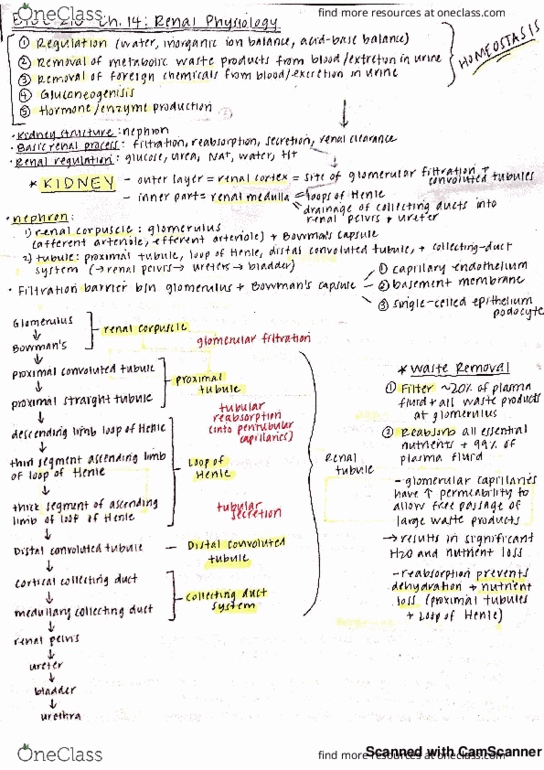 OneClass
find more resources at oneclass.com
Ch. 14: Renal Physiology
① Regulation (water, inorganic ion balance, acid-base balance)
② Removal of metabolic waste products from blood/excretion in urine
③ Removal of foreign chemicals from blood/excretion in urine
④ Gluconeogenisis
⑤ Hormone/enzyme production
HOMEOSTASIS
• Kidney structure: nephron
• Basic renal process: filtration, reabsorption, secretion, renal clearance
• Renal regulation: glucose, urea, Na+, water, H+
* KIDNEY
- outer layer = renal cortex = site of glomerular filtration + convoluted tubules
- inner part = renal medulla = loops of Henle
= drainage of collecting ducts into renal pelvis + ureter
• nephron:
1) renal corpuscle: glomerulus
(afferent arteriole, efferent arteriole) + Bowman's capsule
2) tubule: proximal tubule, loop of Henle, distal convoluted tubule, + collecting-duct
system (→ renal pelvis → ureters → bladder)
• Filtration barrier b/n glomerulus + Bowman's capsule
① capillary endothelium
② basement membrane
③ single-celled epithelium
podocyte
Glomerulus
↓
Bowman's
renal corpuscle
glomerular filtration
↓
proximal convoluted tubule
↓
proximal straight tubule
proximal
tubule
↓
tubular
reabsorption
(into peritubular
capillaries)
descending limb loop of Henle
↓
thin segment ascending limb
of loop of Henle
↓
thick segment of ascending
limb of loop of Henle
Loop of
Henle
tubular
secretion
Renal
tubule
↓
Distal convoluted tubule — Distal convoluted
tubule
↓
cortical collecting duct
↓
medullary collecting duct
collecting duct
system
↓
renal pelvis
↓
ureter
↓
bladder
↓
urethra
* Waste Removal
① Filter ~20% of plasma
fluid + all waste products
at glomerulus
② Reabsorb all essential
nutrients + 99% of
plasma fluid
- glomerular capillaries
have ↑ permeability to
allow free passage of
large waste products
→ results in significant
H2O and nutrient loss
- reabsorption prevents
dehydration + nutrient
loss (proximal tubules
+ Loop of Henle)
OneClass
find more resources at oneclass.com
Scanned with CamScanner